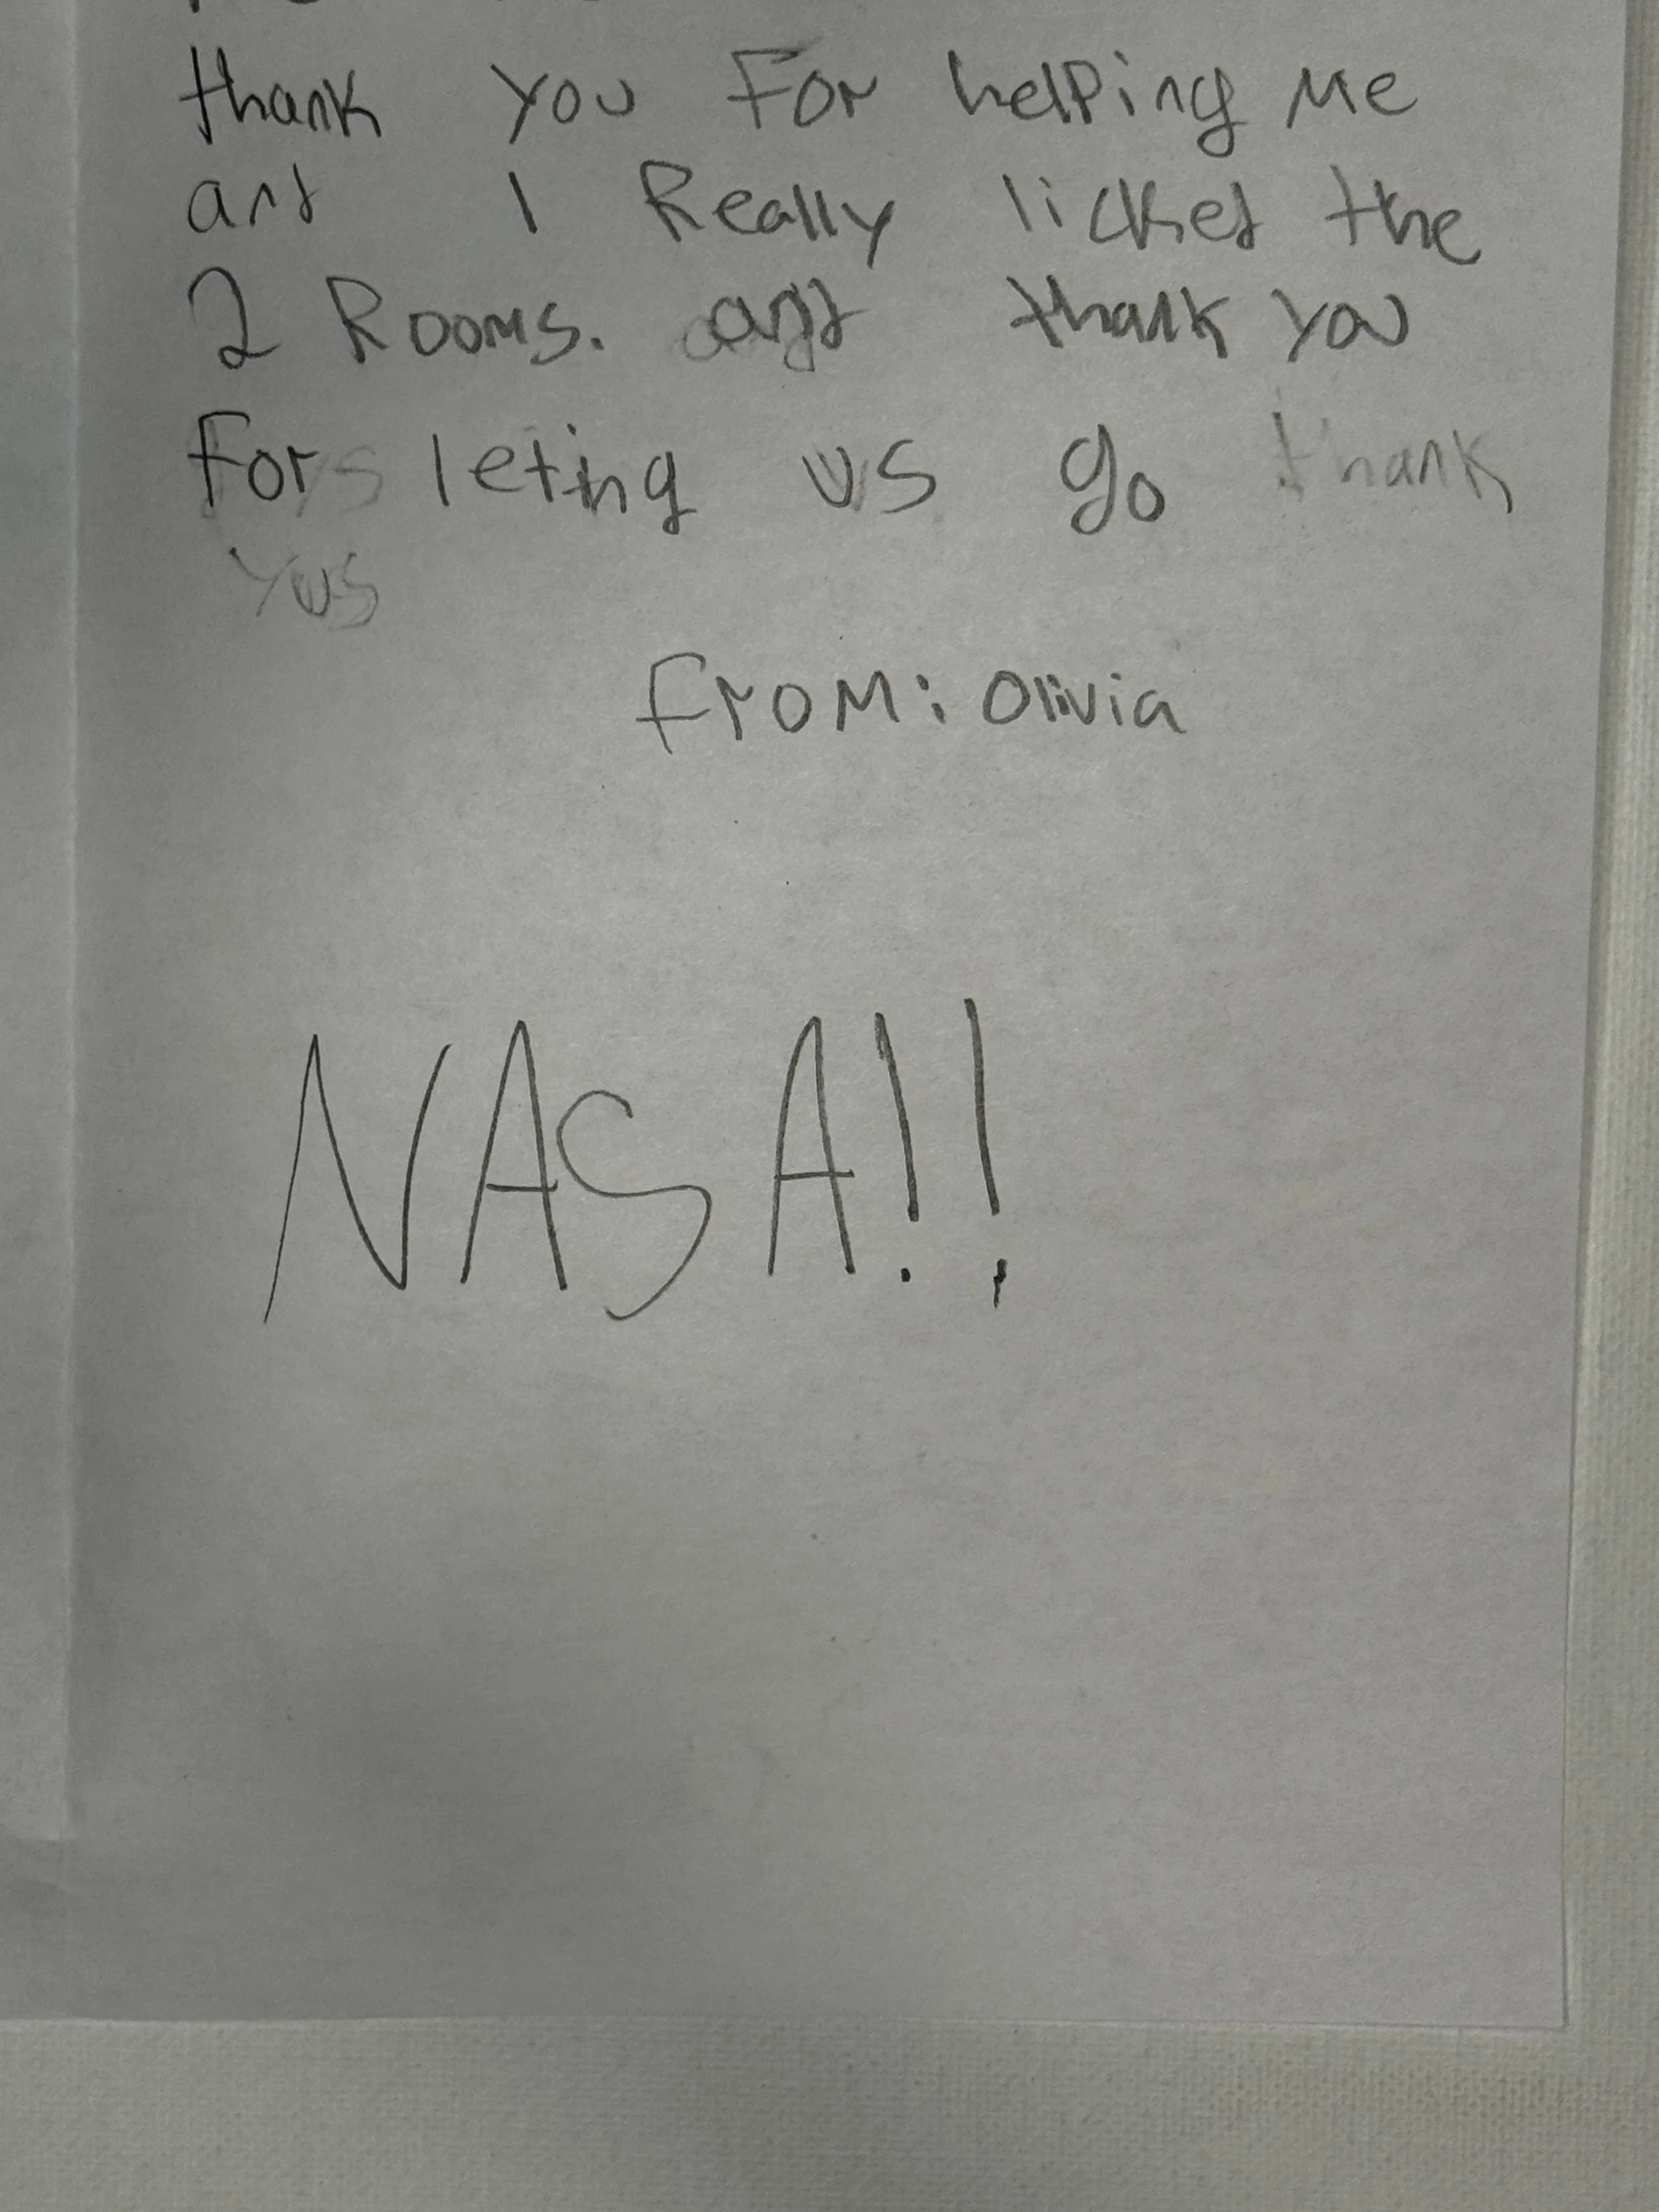 thank you For helping me
and I Really licked the
2 Rooms. and thank you
For leting us go thank
From: Olivia
NASA!!